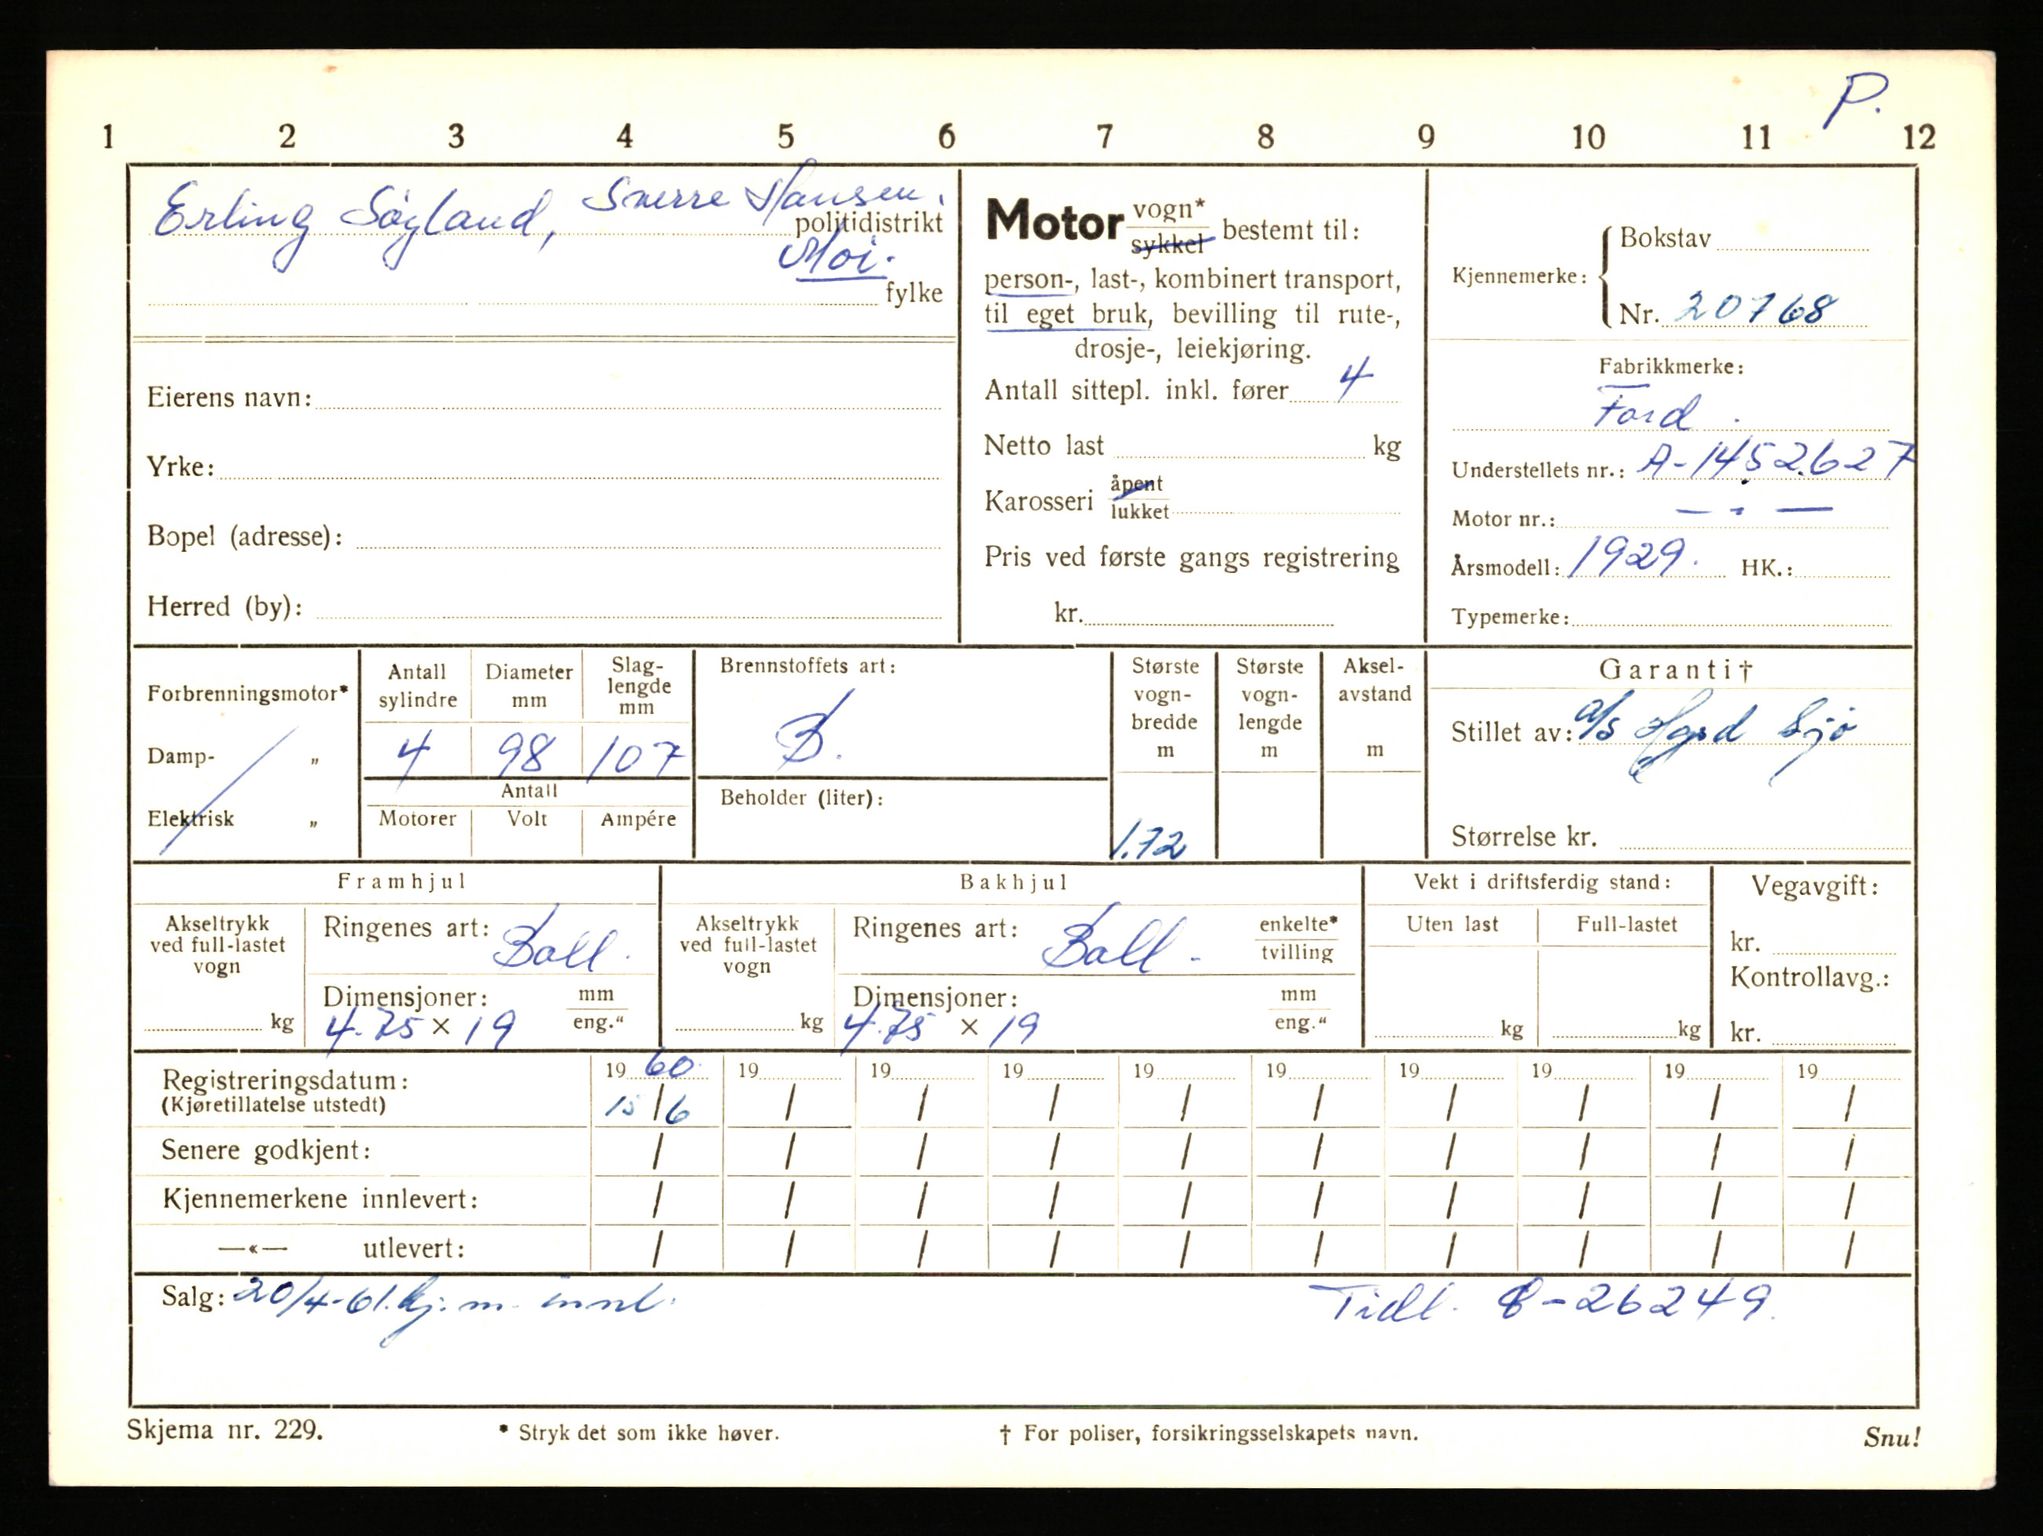 P.
1 2 3 4 5 6 7 8 9 10 11 12
Erling Søyland, Sverre Hansen.
politidistrikt
Moi.
fylke
Eierens navn:
Yrke:
Bopel (adresse):
Herred (by):
Motor vogn* sykkel bestemt til:
person-, last-, kombinert transport,
til eget bruk, bevilling til rute-,
drosje-, leiekjøring.
Antall sittepl. inkl. fører 4
Netto last kg
Karosseri åpent lukket
Pris ved første gangs registrering
kr.
Kjennemerke: Bokstav
Nr. 20768
Fabrikkmerke:
Ford.
Understellets nr.: A-1452627
Motor nr.: — " —
Årsmodell: 1929. HK.:
Typemerke:
Forbrenningsmotor*
Damp- „
Elektrisk „
Antall sylindre Diameter mm Slag-lengde mm
4 98 107
Antall
Motorer Volt Ampére
Brennstoffets art:
B.
Beholder (liter):
Største vogn-bredde m
1.72
Største vogn-lengde m
Aksel-avstand m
Garanti†
Stillet av: a/s Sjø
Størrelse kr.
Framhjul
Akseltrykk ved full-lastet vogn
kg
Ringenes art: Ball.
Dimensjoner: mm eng."
4.75 × 19
Bakhjul
Akseltrykk ved full-lastet vogn
kg
Ringenes art: Ball. enkelte* tvilling
Dimensjoner: mm eng."
4.75 × 19
Vekt i driftsferdig stand:
Uten last Full-lastet
kg kg
Vegavgift:
kr.
Kontrollavg.:
kr.
Registreringsdatum: 19 60 19 19 19 19 19 19 19 19 19
(Kjøretillatelse utstedt) 15/6 / / / / / / / / /
Senere godkjent: / / / / / / / / / /
Kjennemerkene innlevert: / / / / / / / / / /
—«— utlevert: / / / / / / / / / /
Salg: 20/4-61. kj.m. innl. Tidl. -26249.
Skjema nr. 229. * Stryk det som ikke høver. † For poliser, forsikringsselskapets navn. Snu!